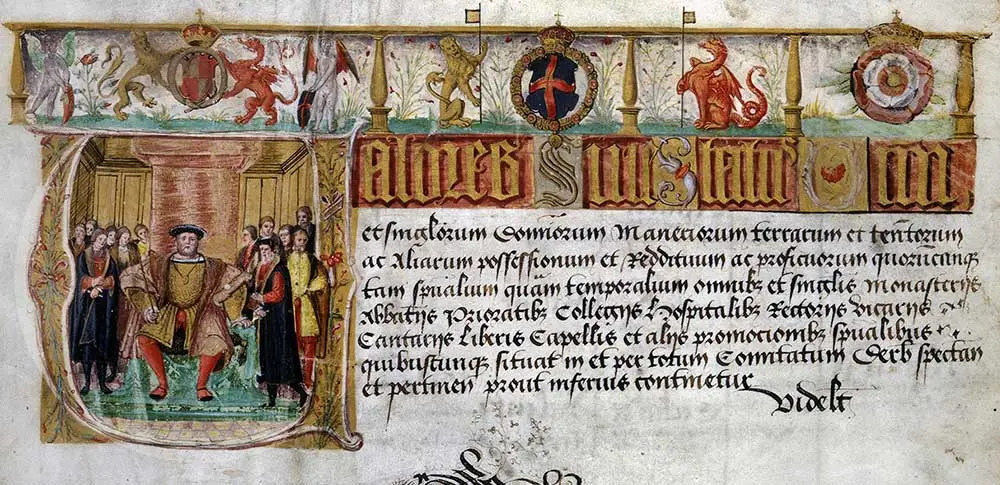 et singlorum Domniorum Maneriorum terrarum et tentorum
ac Aliarum possessionum et Reddituum ac proficuorum quorumcunq
tam spualium quam temporalium omnibz et singlis monasterijs
Abbatijs Prioratibz Collegijs hospitalibz Rectorijs Vicarijs
Cantarijs liberis Capellis et alijs promocionibz spualibus
quibuscunque situat in et per totum Comitatum Derb spectan
et pertinen prout inferius continetur
Videlt